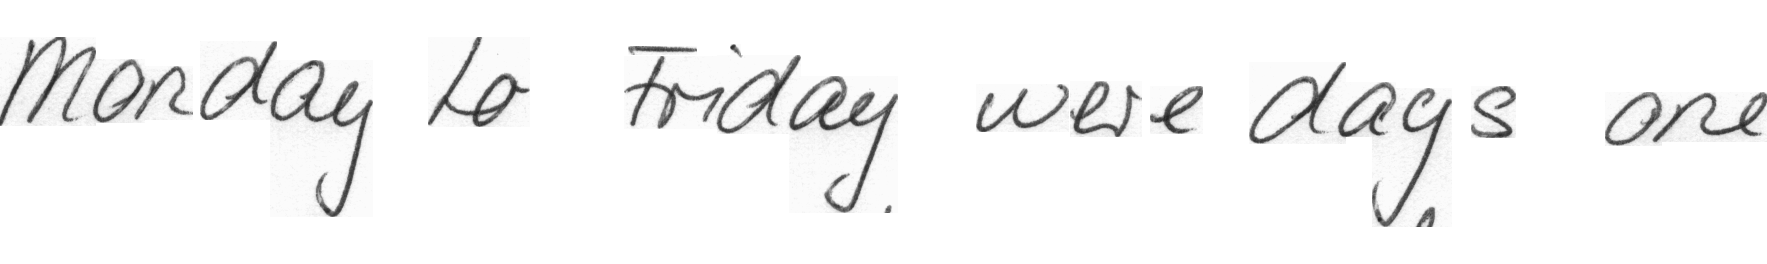 Monday to Friday were days one